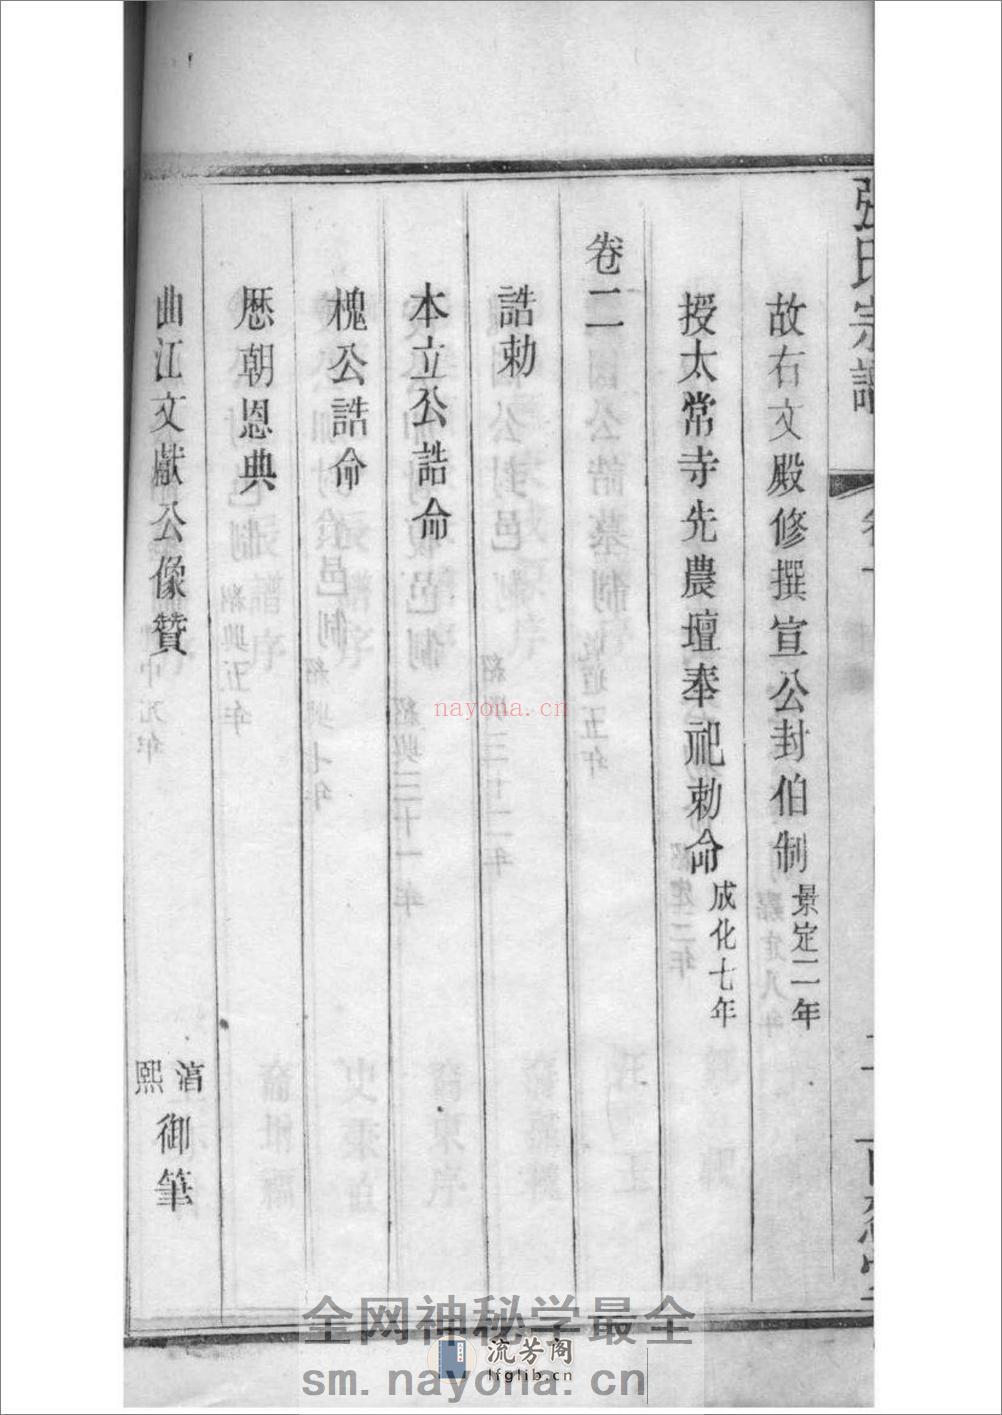 張氏宗譜
故右文殿修撰宣公封伯制景定二年
授太常寺先農壇奉祀勅命成化七年
卷二
誥勅
本立公誥命
槐公誥命
歷朝恩典
曲江文獻公像贊 淳熙御筆
nayona.cn
全网神秘学最全
流芳阁
lfglib.cn
sm.nayona.cn